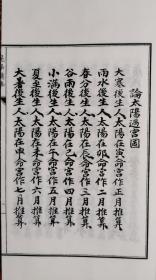 論太陽過宮圖
大寒後生人太陽在寅命宮作正月推算
雨水後生人太陽在卯命宮作二月推算
春分後生人太陽在辰命宮作三月推算
谷雨後生人太陽在巳命宮作四月推算
小滿後生人太陽在午命宮作五月推算
夏至後生人太陽在未命宮作六月推算
大暑後生人太陽在申命宮作七月推算